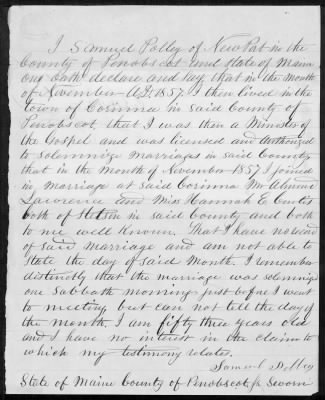 I Samuel Polley of Newport in the
County of Penobscot and State of Maine
on oath declare and say that in the month
of November A.D. 1857 I then lived in the
Town of Corinna in said County of
Penobscot, that I was then a Minister of
the Gospel and was licensed and Authorized
to solemnize marriages in said County
that in the month of November 1857 I joined
in marriage at said Corinna Mr
Lawrence and Miss Hannah E Curtis
both of Stetson in said County and both
to me well Known. That I have no record
of said marriage and am not able to
State the day of said Month. I remember
distinctly that the marriage was solemnized
one Sabbath morning just before I went
to meeting but can not tell the day of
the month. I am fifty three years old
and I have no interest in the claim to
which my testimony relates.
Samuel Polley
State of Maine County of Penobscot Sworn